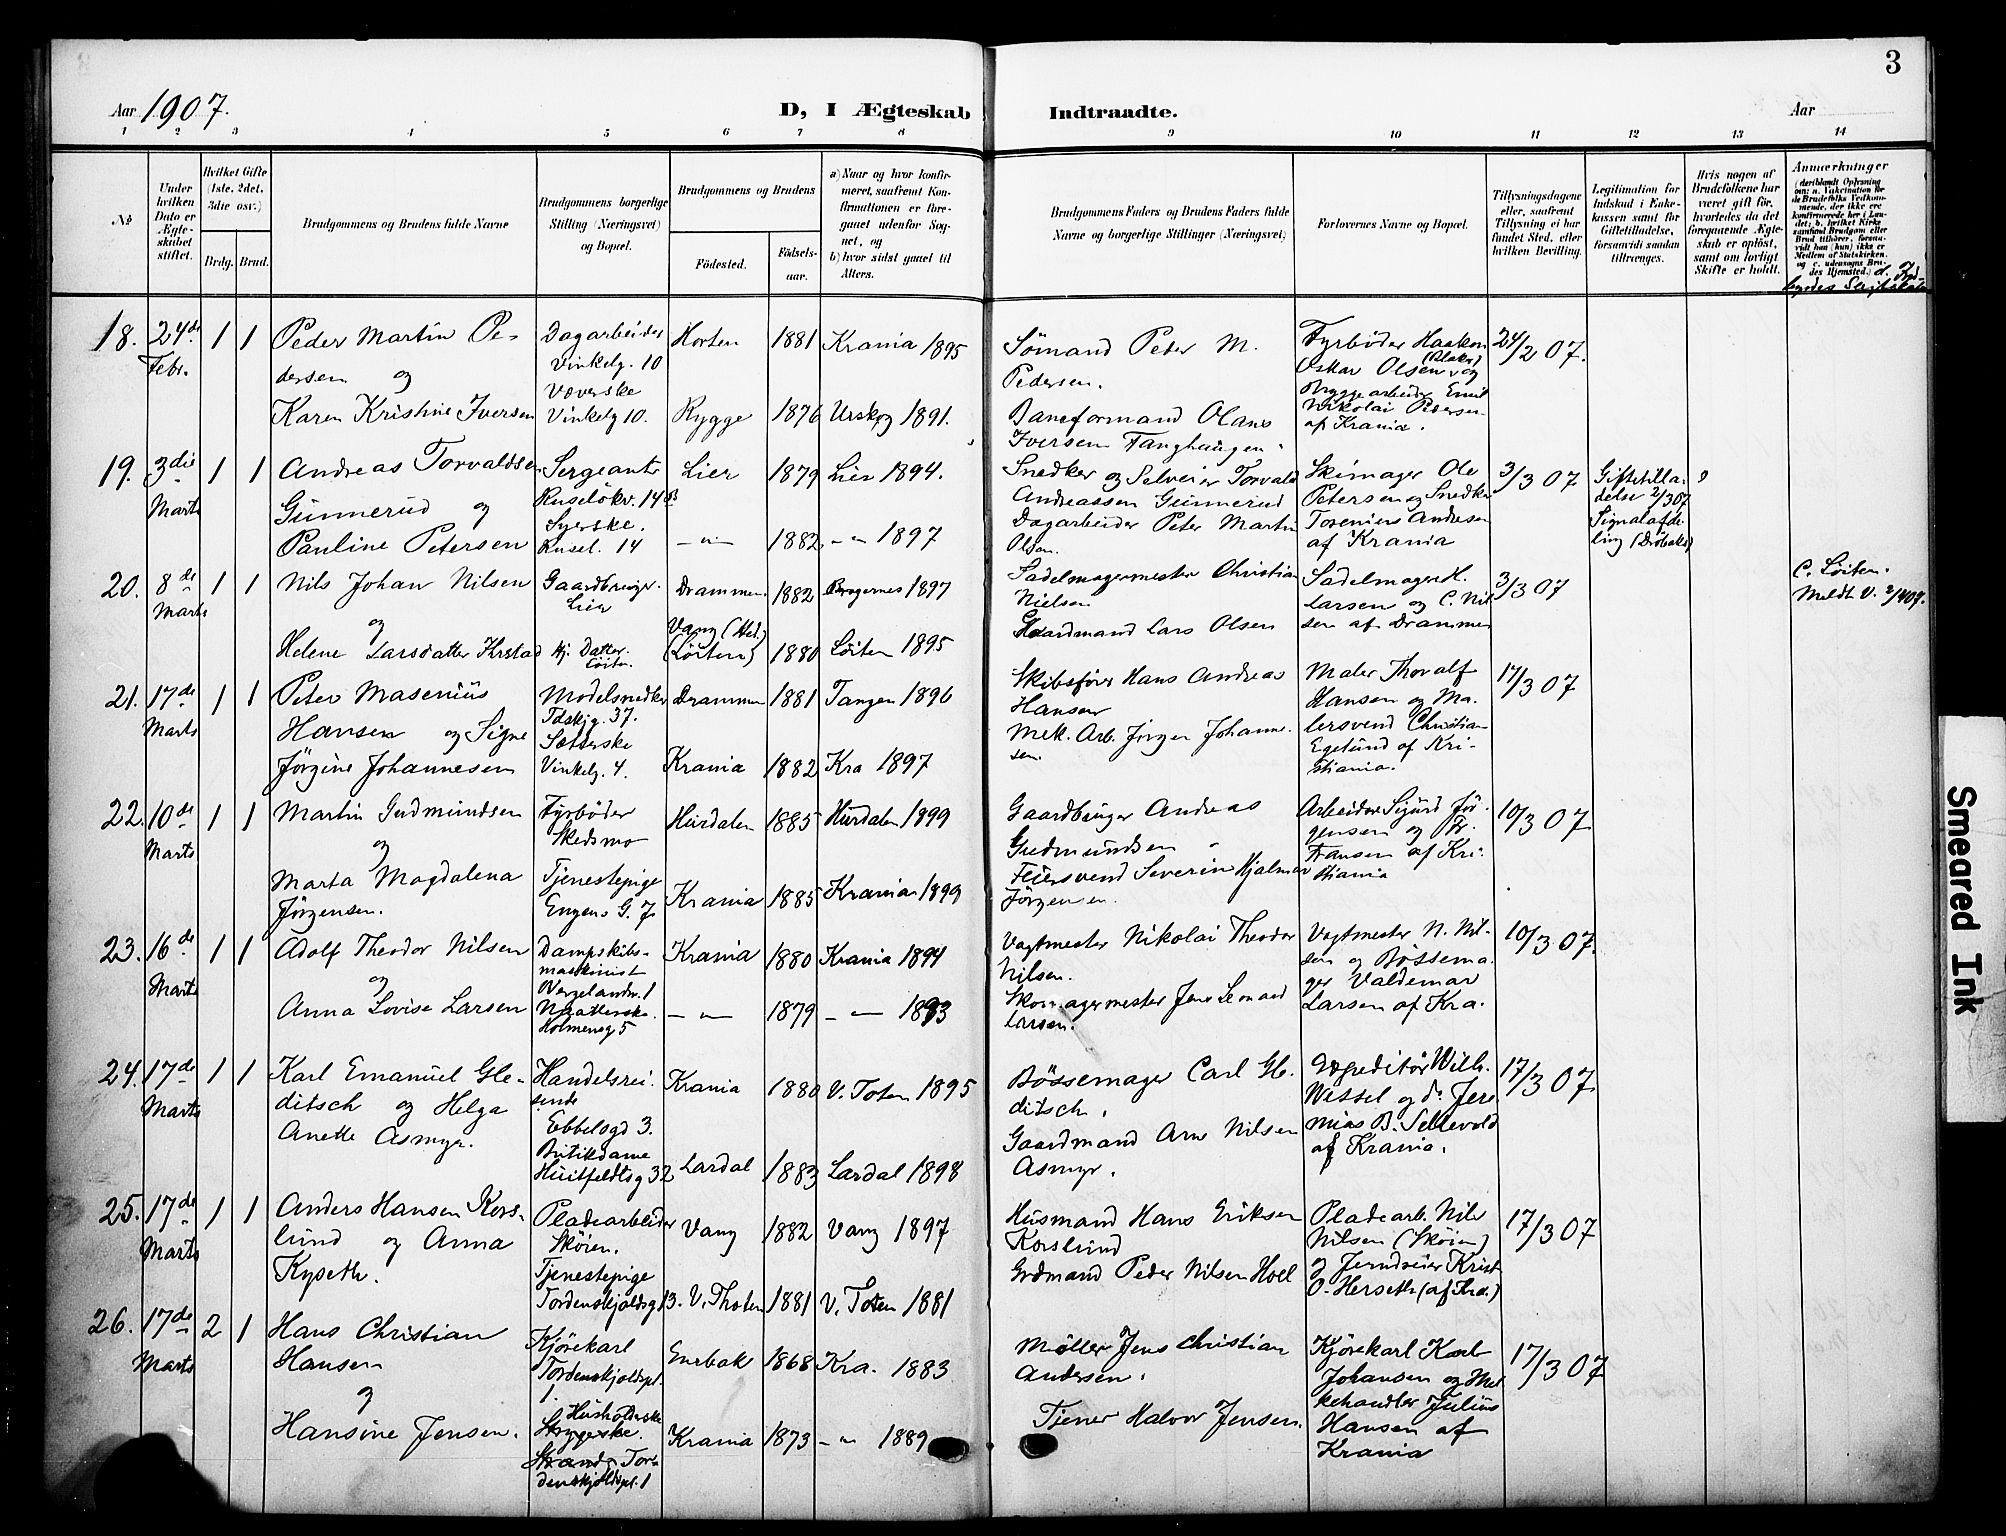 3
Aar 1907.
D, I Ægteskab Indtraadte.
Aar
1 2 3 4 5 6 7 8 9 10 11 12 13 14
№
Under hvilken Dato er Ægteskabet stiftet.
Hvilket Gifte (1ste, 2det, 3die osv.)
Brdg. Brud.
Brudgommens og Brudens fulde Navne
Brudgommens borgerlige Stilling (Næringsvei) og Bopæl.
Brudgommens og Brudens
Födested. Födselsaar.
a) Naar og hvor konfirmeret, saafremt Konfirmationen er foregaaet udenfor Sognet, og
b) hvor sidst gaaet til Alters.
Brudgommens Faders og Brudens Faders fulde Navne og borgerlige Stillinger (Næringsvei)
Forlovernes Navne og Bopæl.
Tillysningsdagene eller, saafremt Tillysning ei har fundet Sted, efter hvilken Bevilling.
Legitimation for Indskud i Enkekassen samt for Giftetilladelse, forsaavidt saadan tiltrænges.
Hvis nogen af Brudefolkene har været gift för, hvorledes da det foregaaende Ægteskab er oplöst, samt om lovligt Skifte er holdt.
Anmærkninger
18. 24de Febr. 1 1
Peder Martin Pedersen og
Karen Kristine Iversen
Dagarbeider Vinkelg. 10
Væverske Vinkelg 10.
Horten 1881 Krania 1895
Rygge 1876 Urskog 1891.
Sömand Peder M. Pedersen.
Baneformand Olaus Iversen Tanghaugen
Fyrböder Haakon Oskar Olsen og Bryggearbeider Emil Nikolai Pedersen af Krania.
24/2 07.
19. 3die Marts 1 1
Andreas Torvaldsen Gunnerud og
Pauline Petersen
Sergeant Ruselökv. 14 B
Syerske. Rusel. 14
Lier 1879 Lier 1894.
— " — 1882 - " 1897
Snedker og Selveier Torvald Andreassen Gunnerud
Dagarbeider Peter Martin Olsen.
Skimager Ole Petersen og Snedker Torenius Andresen af Krania
3/3 07
Giftetilladelse 2/3 07 Signalafdeling (Dröbak)
20. 8de Marts 1 1
Nils Johan Nilsen
og
Helene Larsdatter Krstad
Gaardbruger. Lier
Hj. Datter. Löiten
Drammen 1882 Bragernes 1897
Vang (Hed.) (Löiten) 1880 Löiten 1895
Sadelmagermester Christian Nielsen
Gaardmand Lars Olsen
Sadelmager H. Larsen og C. Nilsen af Drammen
3/3 07
C. Löiten.
Meldt V. 2/4 07.
21. 17de Marts 1 1
Peter Masenius
Hansen og Signe
Jörgine Johannesen
Modelsnedker 37.
Sætterske Vinkelg. 4.
Drammen 1881 Tangen 1896
Krania 1882 Kra 1897
Skibsförer Hans Andreas Hansen
Mek. Arb. Jörgen Johannesen.
Maler Thoralf Hansen og Malersvend Christian Egelund af Kristiania.
17/3 07
22. 10de Marts 1 1
Martin Gudmundsen
og
Marta Magdalena Jörgensen.
Fyrböder Skedsmo
Tjenestepige Engens G. 7
Hurdalen 1885 Hurdalen 1899
Krania 1885 Krania 1899
Gaardbruger Andreas Gudmundsen
Feiersvend Severin Hjalmar Jörgensen.
Arbeider Sigurd Jörgensen og Fr. Fransen af Kristiania
10/3 07
23. 16de Marts 1 1
Adolf Theodor Nilsen
og
Anna Lovise Larsen
Dampskibsmaskinist Wergelandsv. 1
Holmensg 5
Krania 1880 Krania 1894
— " — 1879 — " — 1893
Vagtmester Nikolai Theodor Nilsen.
Skomagermester Jens Leonard Larsen.
Vagtmester N. Nilsen og Bössemager Valdemar Larsen af Kra.
10/3 07.
24. 17de Marts 1 1
Karl Emanuel Gleditsch og Helga
Anette Asmyr.
Handelsreisende Ebbelsgd 3.
Butikdame Huitfeldtsg 32
Krania 1880 V. Toten 1895
Lardal 1883 Lardal 1898
Bössemager Carl Gleditsch.
Gaardmand Arne Nilsen Asmyr.
Expeditör Wilh. Wessel og do Jeremias B. Sellevold af Krania.
17/3 07
25. 17de Marts 1 1
Anders Hansen Korslund og Anna
Kyseth.
Pladearbeider Sköien.
Tjenestepige Tordenskjoldsg 13.
Vang 1882 Vang 1897
V. Thoten 1881 V. Toten 1881
Husmand Hans Eriksen Korslund
Grdmand Peder Nilsen Hoel
Pladearb. Nils Nilsen (Sköien) og Jerndreier Krist O. Herseth (af Kra.)
17/3 07
26. 17de Marts 2 1
Hans Christian Hansen
og
Hansine Jensen.
Kjörekarl Tordenskjoldspl. 1.
Husholderske Strygerske. Tordenskjoldspl. 1
Enebak 1868 Kra. 1883
Krania 1873 - " 1889
Möller Jens Christian Andersen.
Tjener Halvor Jensen.
Kjörekarl Karl Johansen og Melkehandler Julius Hansen af Krania
17/3 07
Smeared Ink